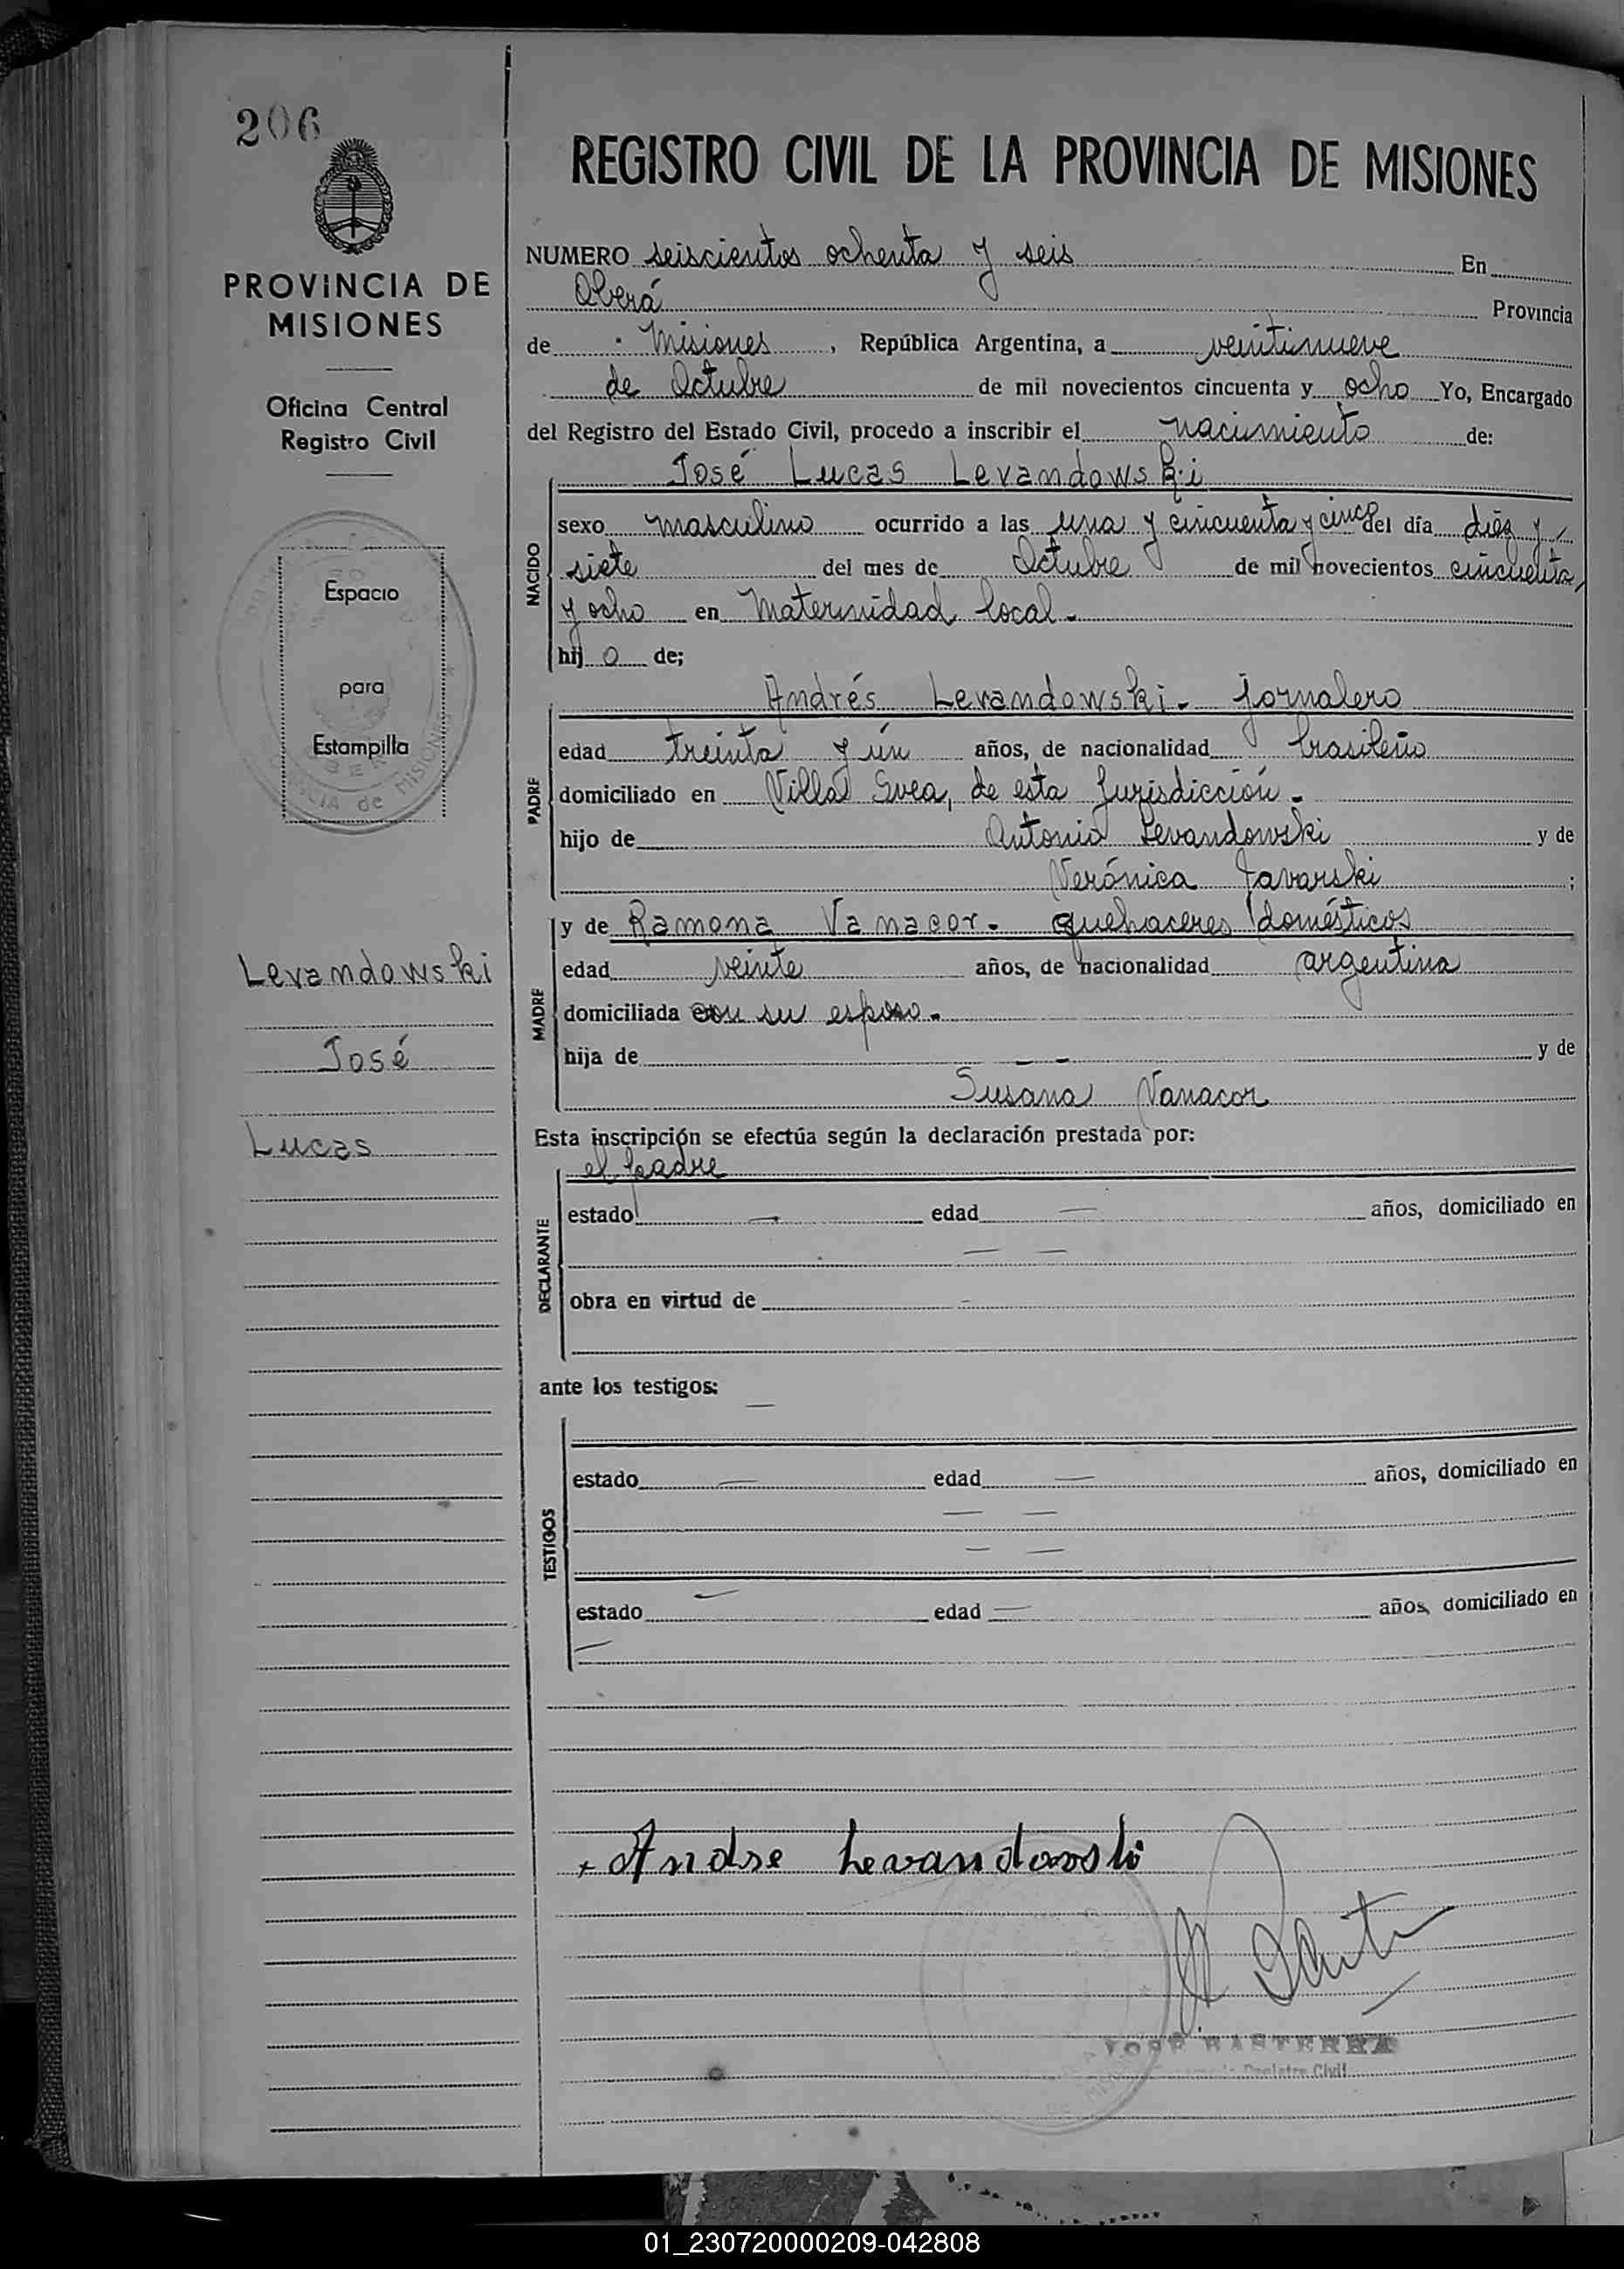 206
PROVINCIA DE
MISIONES
Oficina Central
Registro Civil
Espacio
para
Estampilla
Levandowski
José
Lucas
REGISTRO CIVIL DE LA PROVINCIA DE MISIONES
NUMERO seiscientos ochenta y seis En
Oberá Provincia
de Misiones, República Argentina, a veintinueve
de Octubre de mil novecientos cincuenta y ocho Yo, Encargado
del Registro del Estado Civil, procedo a inscribir el nacimiento de:
José Lucas Levandowski
NACIDO
sexo masculino ocurrido a las una y cincuenta y cinco del día diez y
siete del mes de Octubre de mil novecientos cincuenta
y ocho en Maternidad local.
hijo de;
PADRE
Andrés Levandowski. jornalero
edad treinta y ún años, de nacionalidad brasileño
domiciliado en Villa Svea, de esta Jurisdicción.
hijo de Antonio Levandowski y de
Verónica Javarski ;
MADRE
y de Ramona Vanacor. quehaceres domésticos
edad veinte años, de nacionalidad argentina
domiciliada con su esposo.
hija de - - y de
Susana Vanacor
Esta inscripción se efectúa según la declaración prestada por:
DECLARANTE
el padre
estado — edad — años, domiciliado en
— —
obra en virtud de -
ante los testigos: —
TESTIGOS
estado — edad — años, domiciliado en
— —
— —
estado — edad — años, domiciliado en
—
Andre Levandowski
JOSE BASTERRA
Registro Civil
01_230720000209-042808